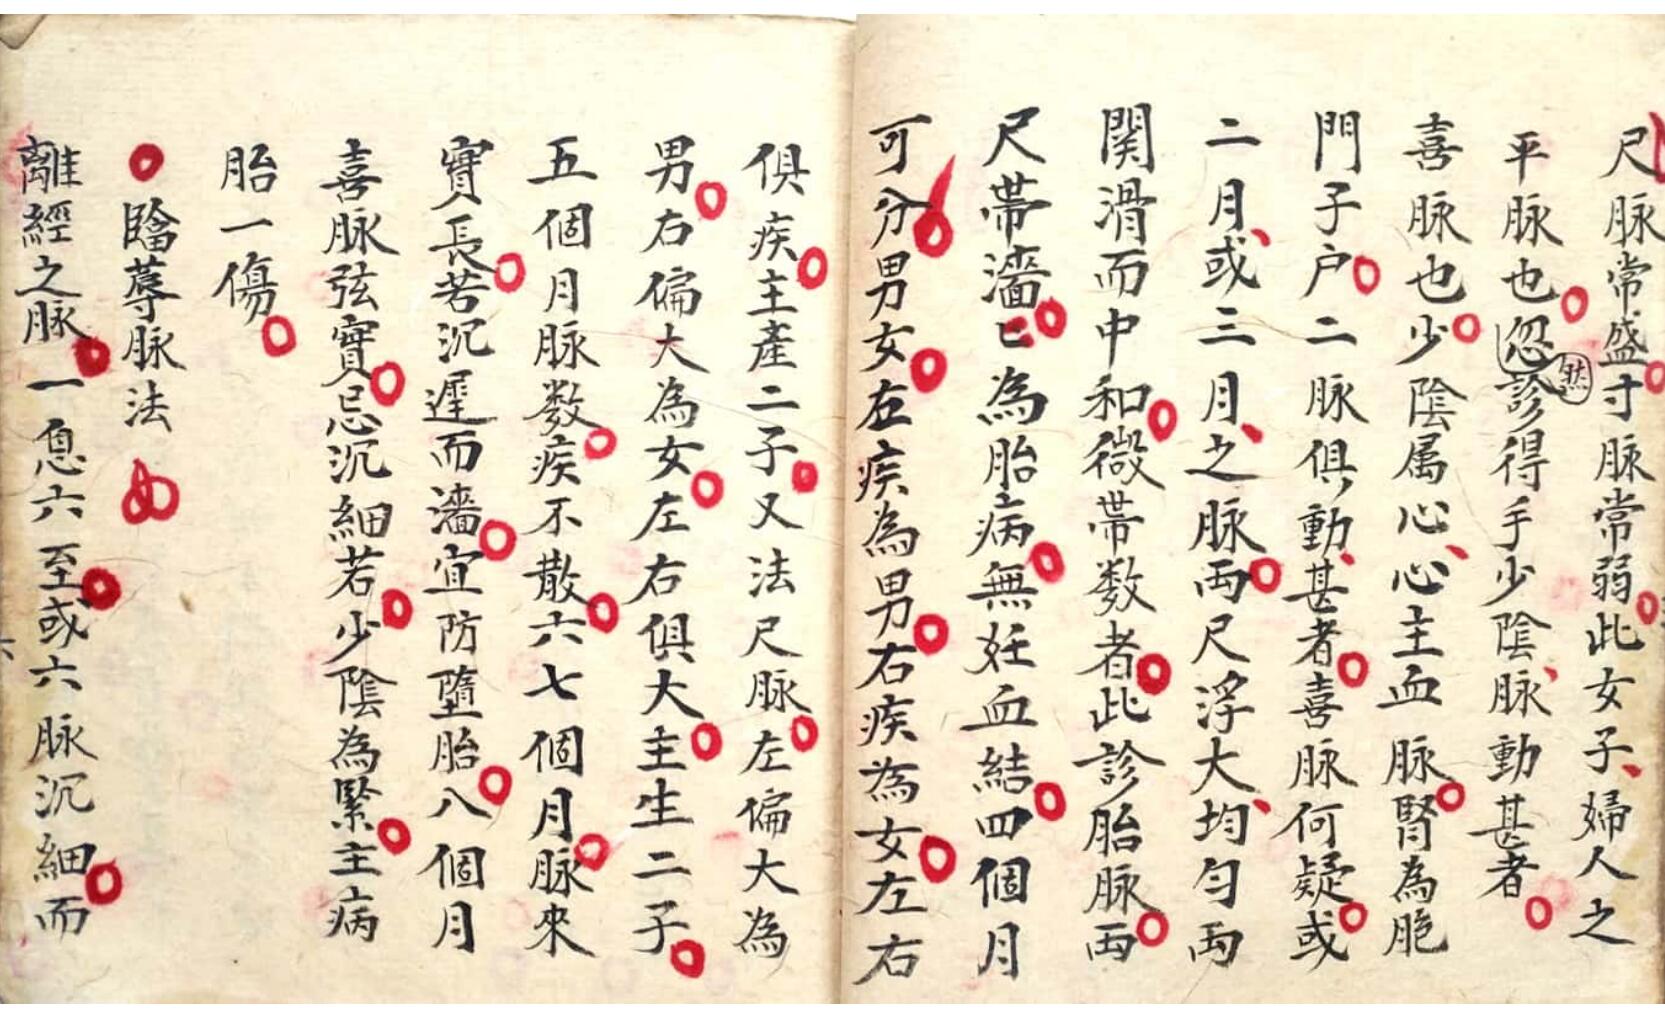 尺脉常盛寸脉常弱此女子婦人之
平脉也忽診得手少陰脉動甚者
喜脉也少陰属心心主血脉腎為胞
門子户二脉俱動甚者喜脉何疑或
二月或三月之脉両尺浮大均匀両
関滑而中和微帯数者此診胎脉両
尺帯濇匕為胎病無妊血結四個月
可分男女左疾為男右疾為女左右
俱疾主產二子又法尺脉左偏大為
男右偏大為女左右俱大主生二子
五個月脉数疾不散六七個月脉來
實長若沉遲而濇宜防墮胎八個月
喜脉弦實忌沉細若少陰為緊主病
胎一傷
臨蓐脉法
離經之脉一息六至或六脉沉細而